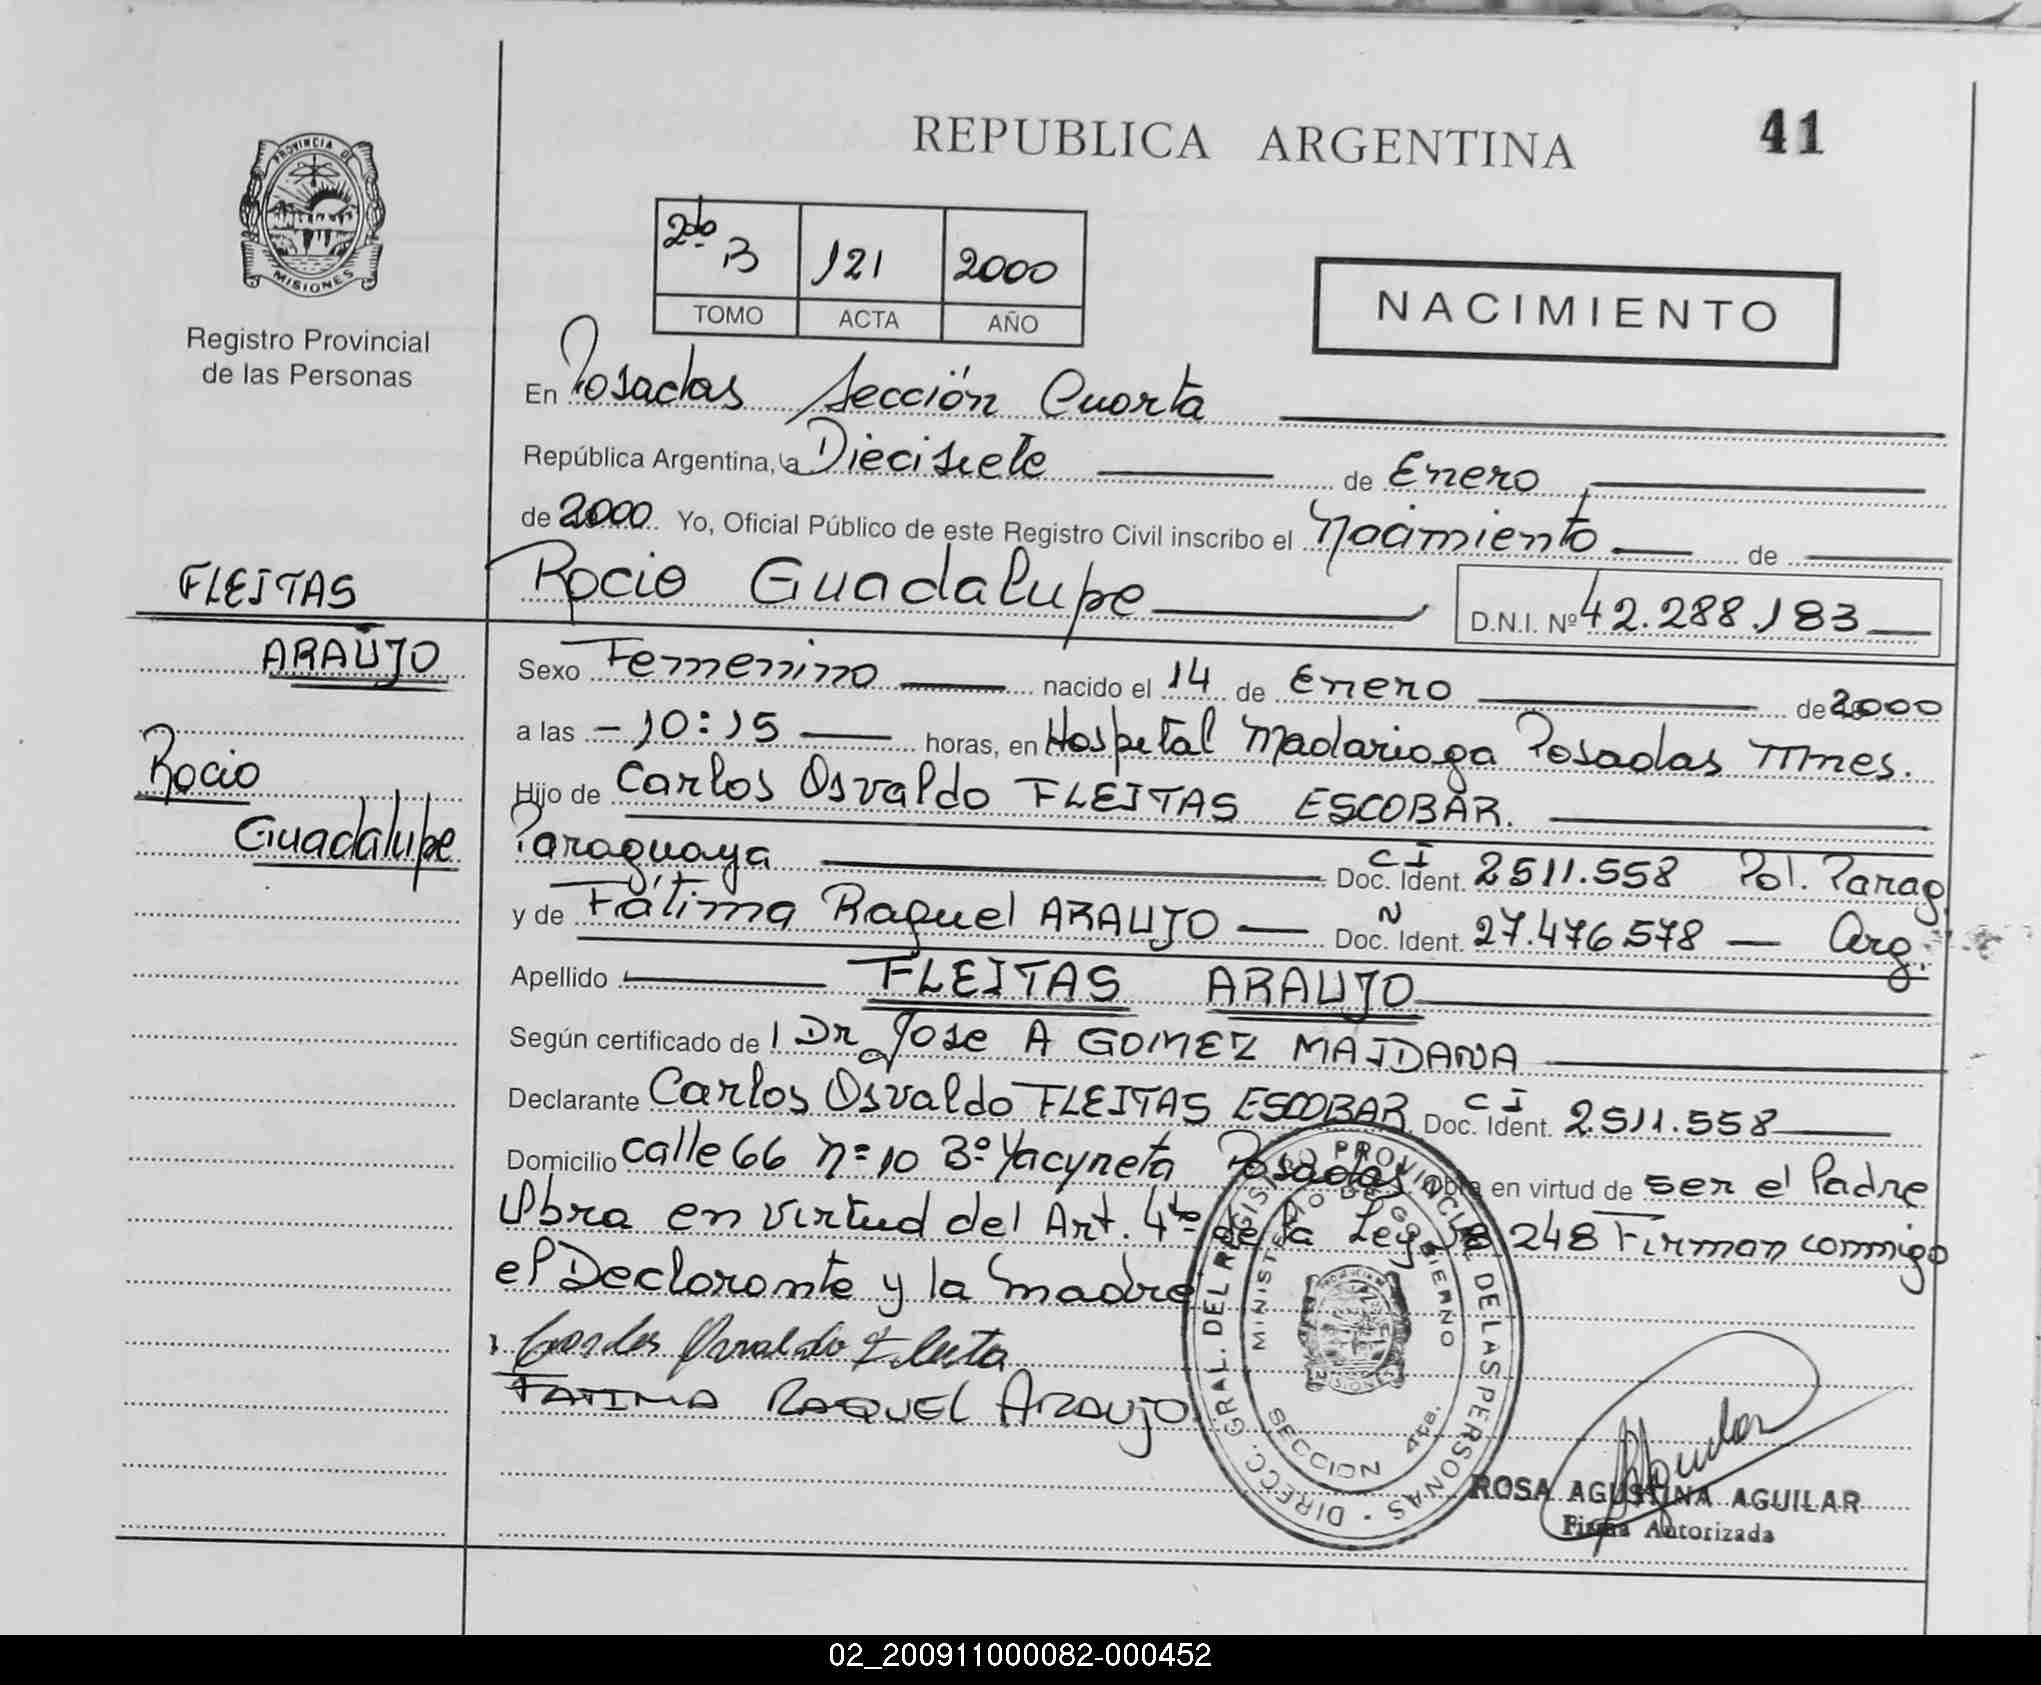 REPUBLICA ARGENTINA
41
PROVINCIA DE
MISIONES
Registro Provincial
de las Personas
2do B 121 2000
TOMO ACTA AÑO
NACIMIENTO
En Posadas Sección Cuarta
República Argentina, a Diecisiete de Enero
de 2000 Yo, Oficial Público de este Registro Civil inscribo el Nacimiento de
Rocio Guadalupe D.N.I. Nº 42.288.183
FLEITAS
ARAUJO
Rocio
Guadalupe
Sexo Femenino nacido el 14 de Enero de 2000
a las - 10:15 horas, en Hospital Madariaga Posadas Mnes.
Hijo de Carlos Osvaldo FLEITAS ESCOBAR.
Paraguaya CI Doc. Ident. 2511.558 Pol. Parag
y de Fátima Raquel ARAUJO Doc. Ident. 27.476578 — Arg.
Apellido FLEITAS ARAUJO
Según certificado de Dr Jose A GOMEZ MAIDANA
Declarante Carlos Osvaldo FLEITAS ESCOBAR CI Doc. Ident. 2.511.558
Domicilio calle 66 nº 10 Bº Yacyreta Posadas Obra en virtud de ser el Padre
Obra en virtud del Art. 4to de la Ley 18248 Firman conmigo
el Declarante y la madre
Carlos Osvaldo Fleita
FATIMA RAQUEL ARAUJO
DIRECC. GRAL. DEL REGISTRO PROVINCIAL DE LAS PERSONAS
MINISTERIO DE GOBIERNO
MISIONES
SECCION 4ta.
ROSA AGUSTINA AGUILAR
Firma Autorizada
02_200911000082-000452